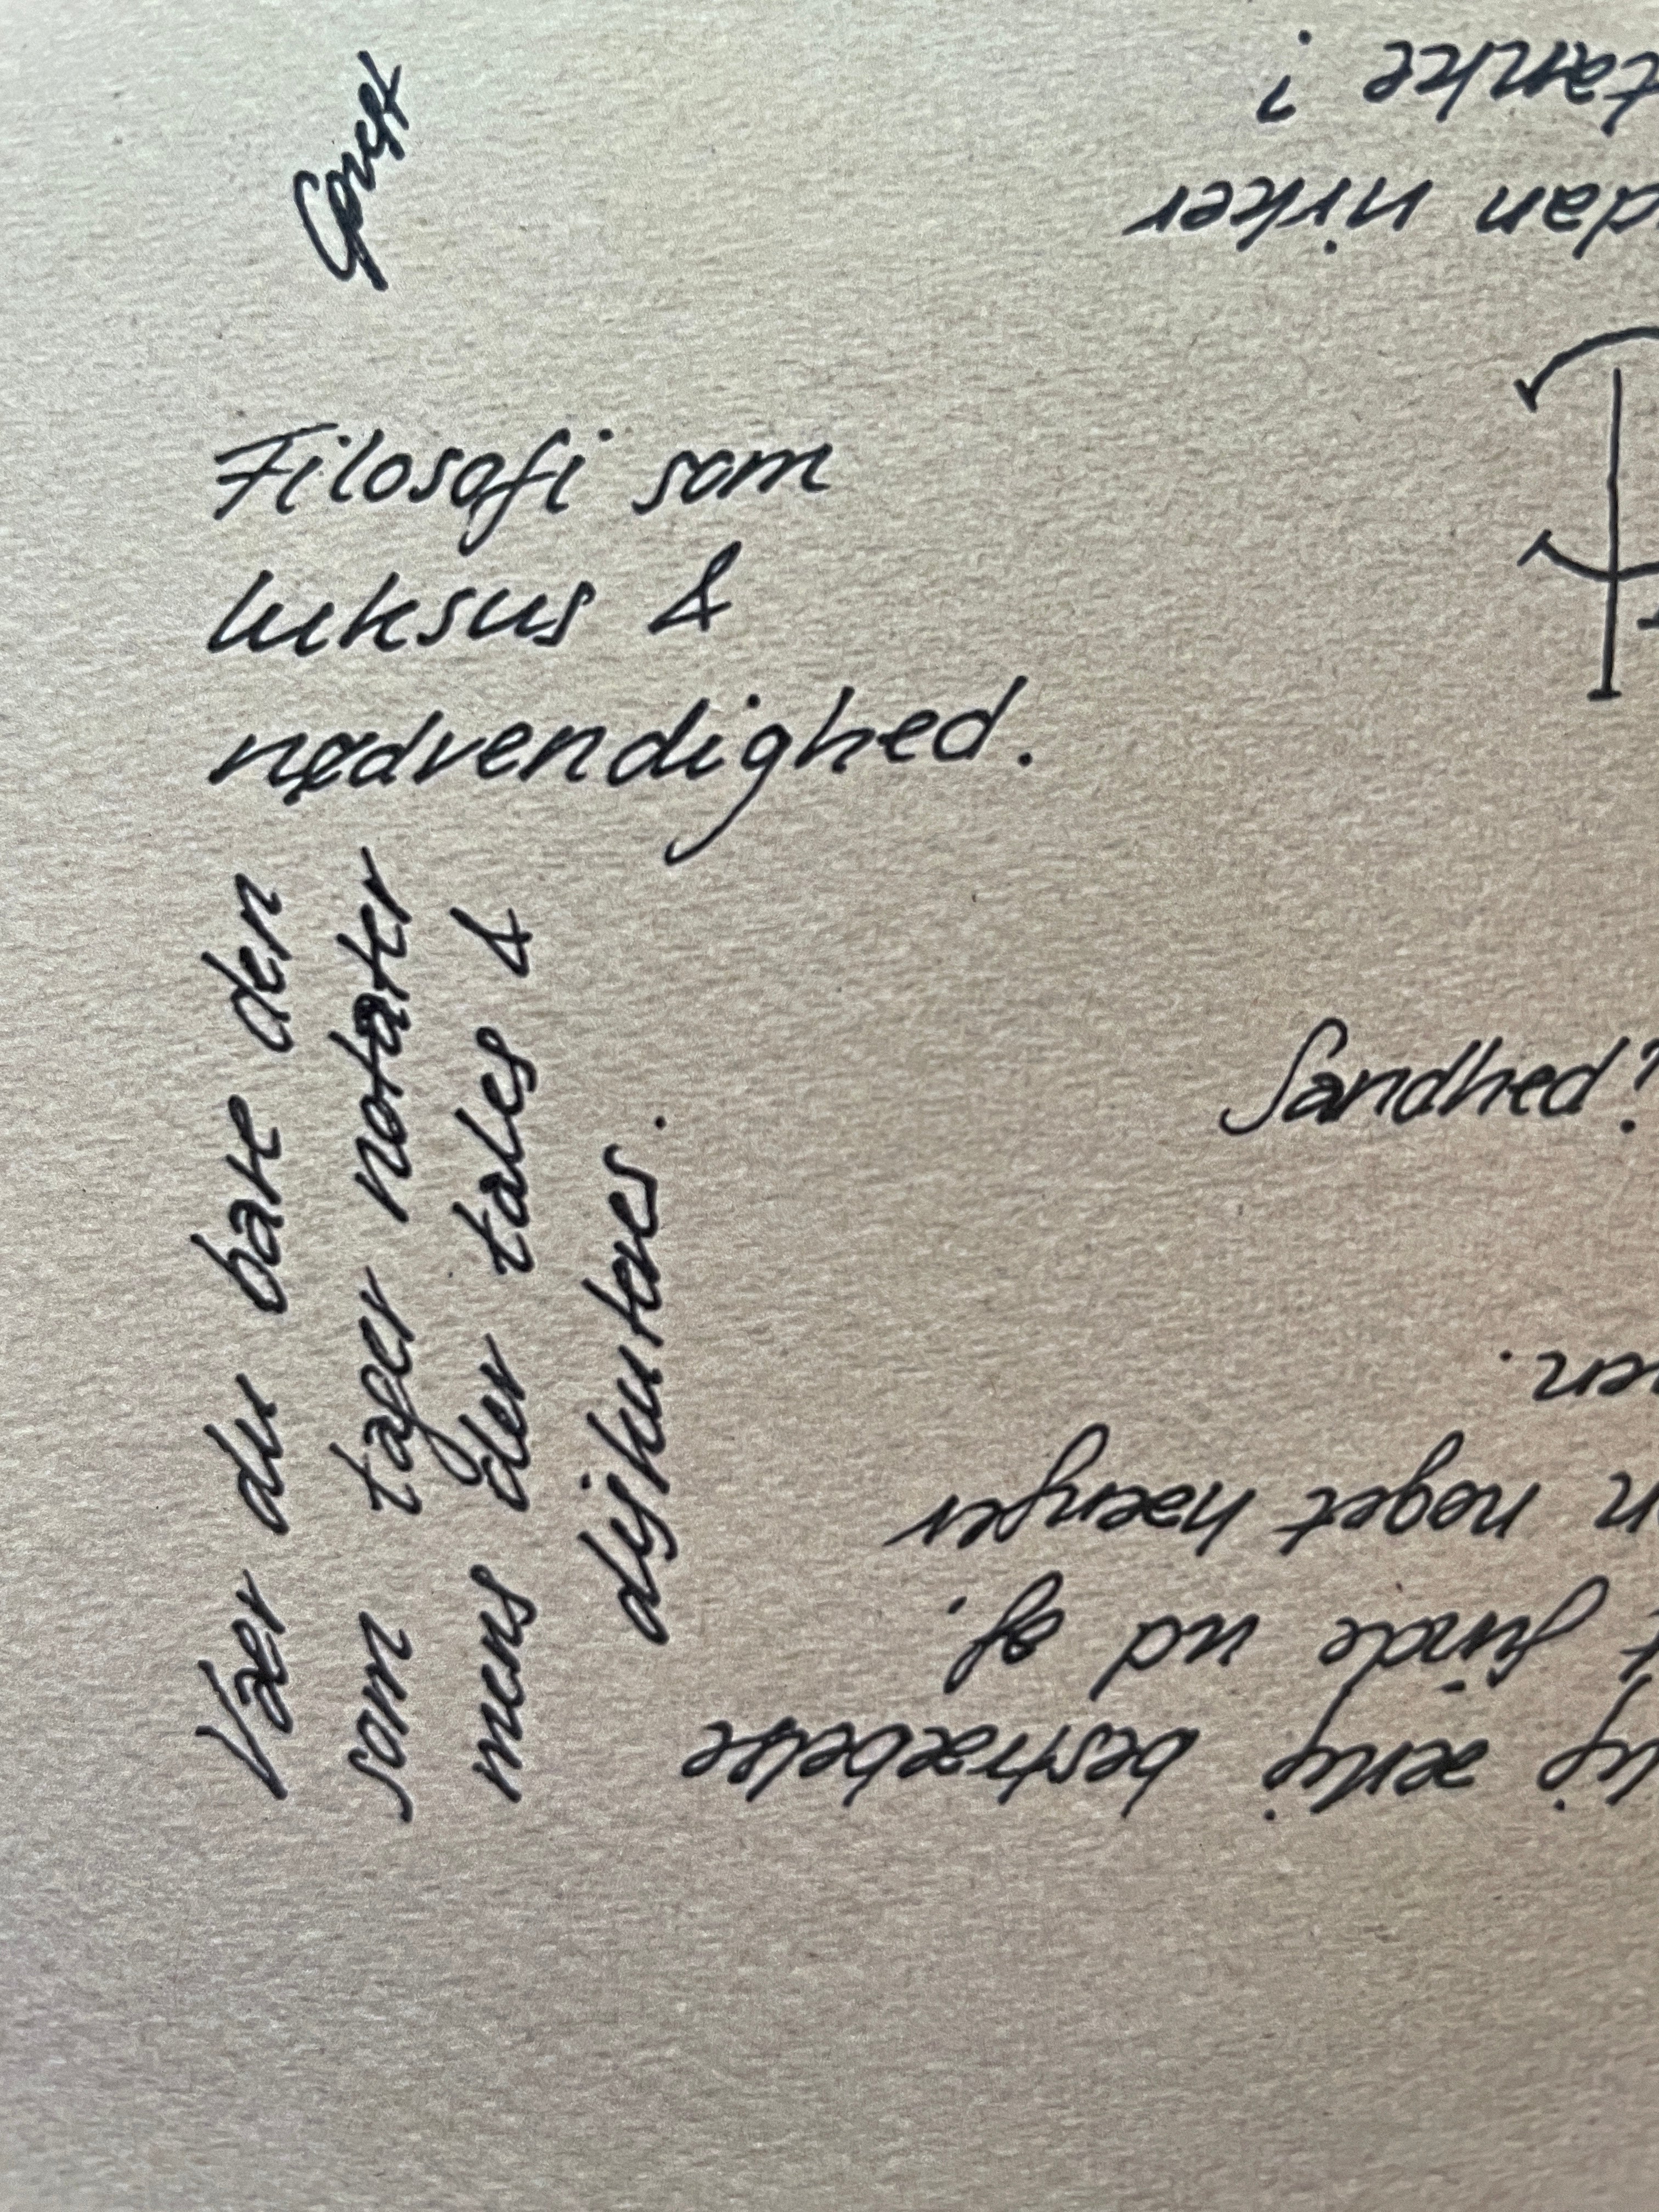 Filosofi som
luksus &
nødvendighed.
Vær du bare den
som tager notater
mens der tales &
diskuteres.
Sandhed?
dan virker
tanke i
ærlig bestræbelse
finde ud af,
noget hænger